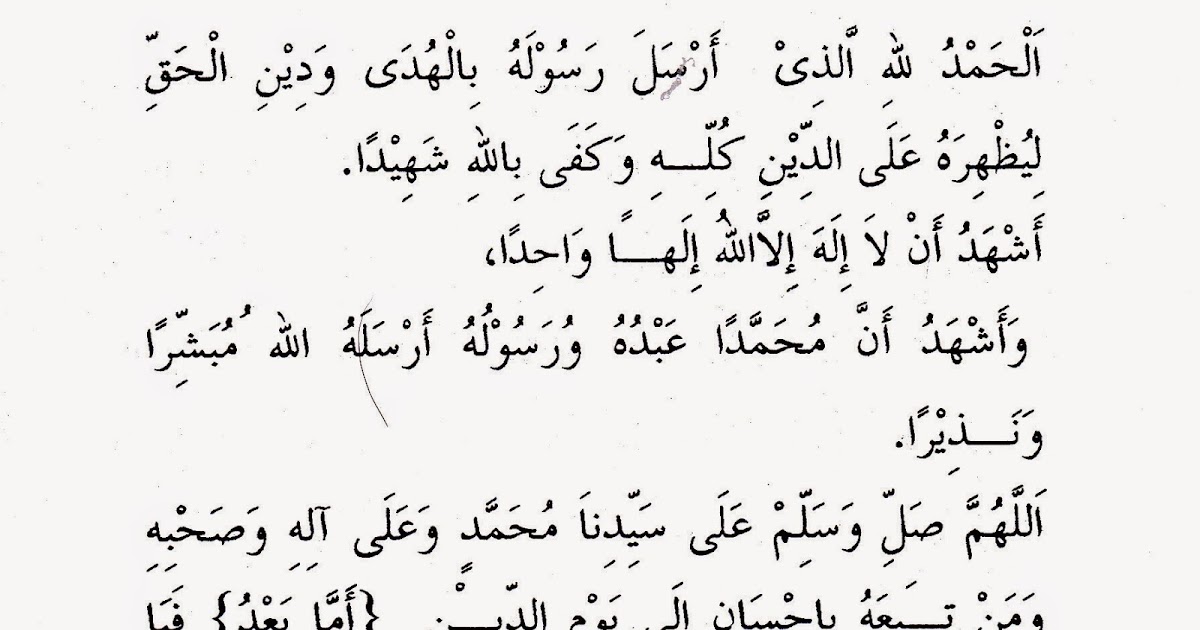 اَلْحَمْدُ لله الَّذِىْ أَرْسَلَ رَسُوْلَهُ بِالْهُدَى وَدِيْنِ الْحَقِّ
لِيُظْهِرَهُ عَلَى الدِّيْنِ كُلِّــهِ وَكَفَى بِاللهِ شَهِيْدًا.
أَشْهَدُ أَنْ لاَ إِلَهَ إِلاَّاللهُ إِلَهــًا وَاحِدًا،
وَأَشْهَدُ أَنَّ مُحَمَّدًا عَبْدُهُ وُرَسُوْلُهُ أَرْسَلَهُ الله ُمُبَشِّرًا
وَنَــذِيْرًا.
اَللَّهُمَّ صَلِّ وَسَلِّمْ عَلَى سَيِّدِناَ مُحَمَّدٍ وَعَلَى آلِهِ وَصَحْبِهِ
وَمَنْ تــَبِعَهُ بِإِحْسَانٍ إِلَى يَوْمِ الدِّيــْنِ. {أَمَّا بَعْدُ} فَيَا